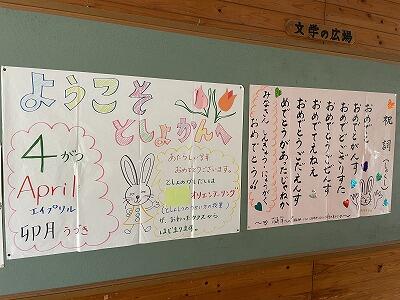 文学の広場
ようこそ
としょかんへ
4がつ
April
エイプリル
卯月 うづき
あたらしい学年
おめでとうございます。
としょかんのかしだしは
オリエンテーリング
(としょしつのつかい方の授業)
が、おわったクラスから
はじまります。
祝詞
おめ…
おめでとがんす
おめでどござりすた
おめでとうござんす
おめでてえねえ
おめでとうごだんす
めでとうがあたじゃねか
みなさん
おめでとう!!